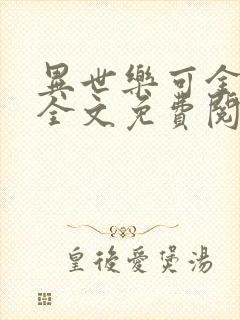 異世樂可全
全文免費閱
皇後愛煲湯